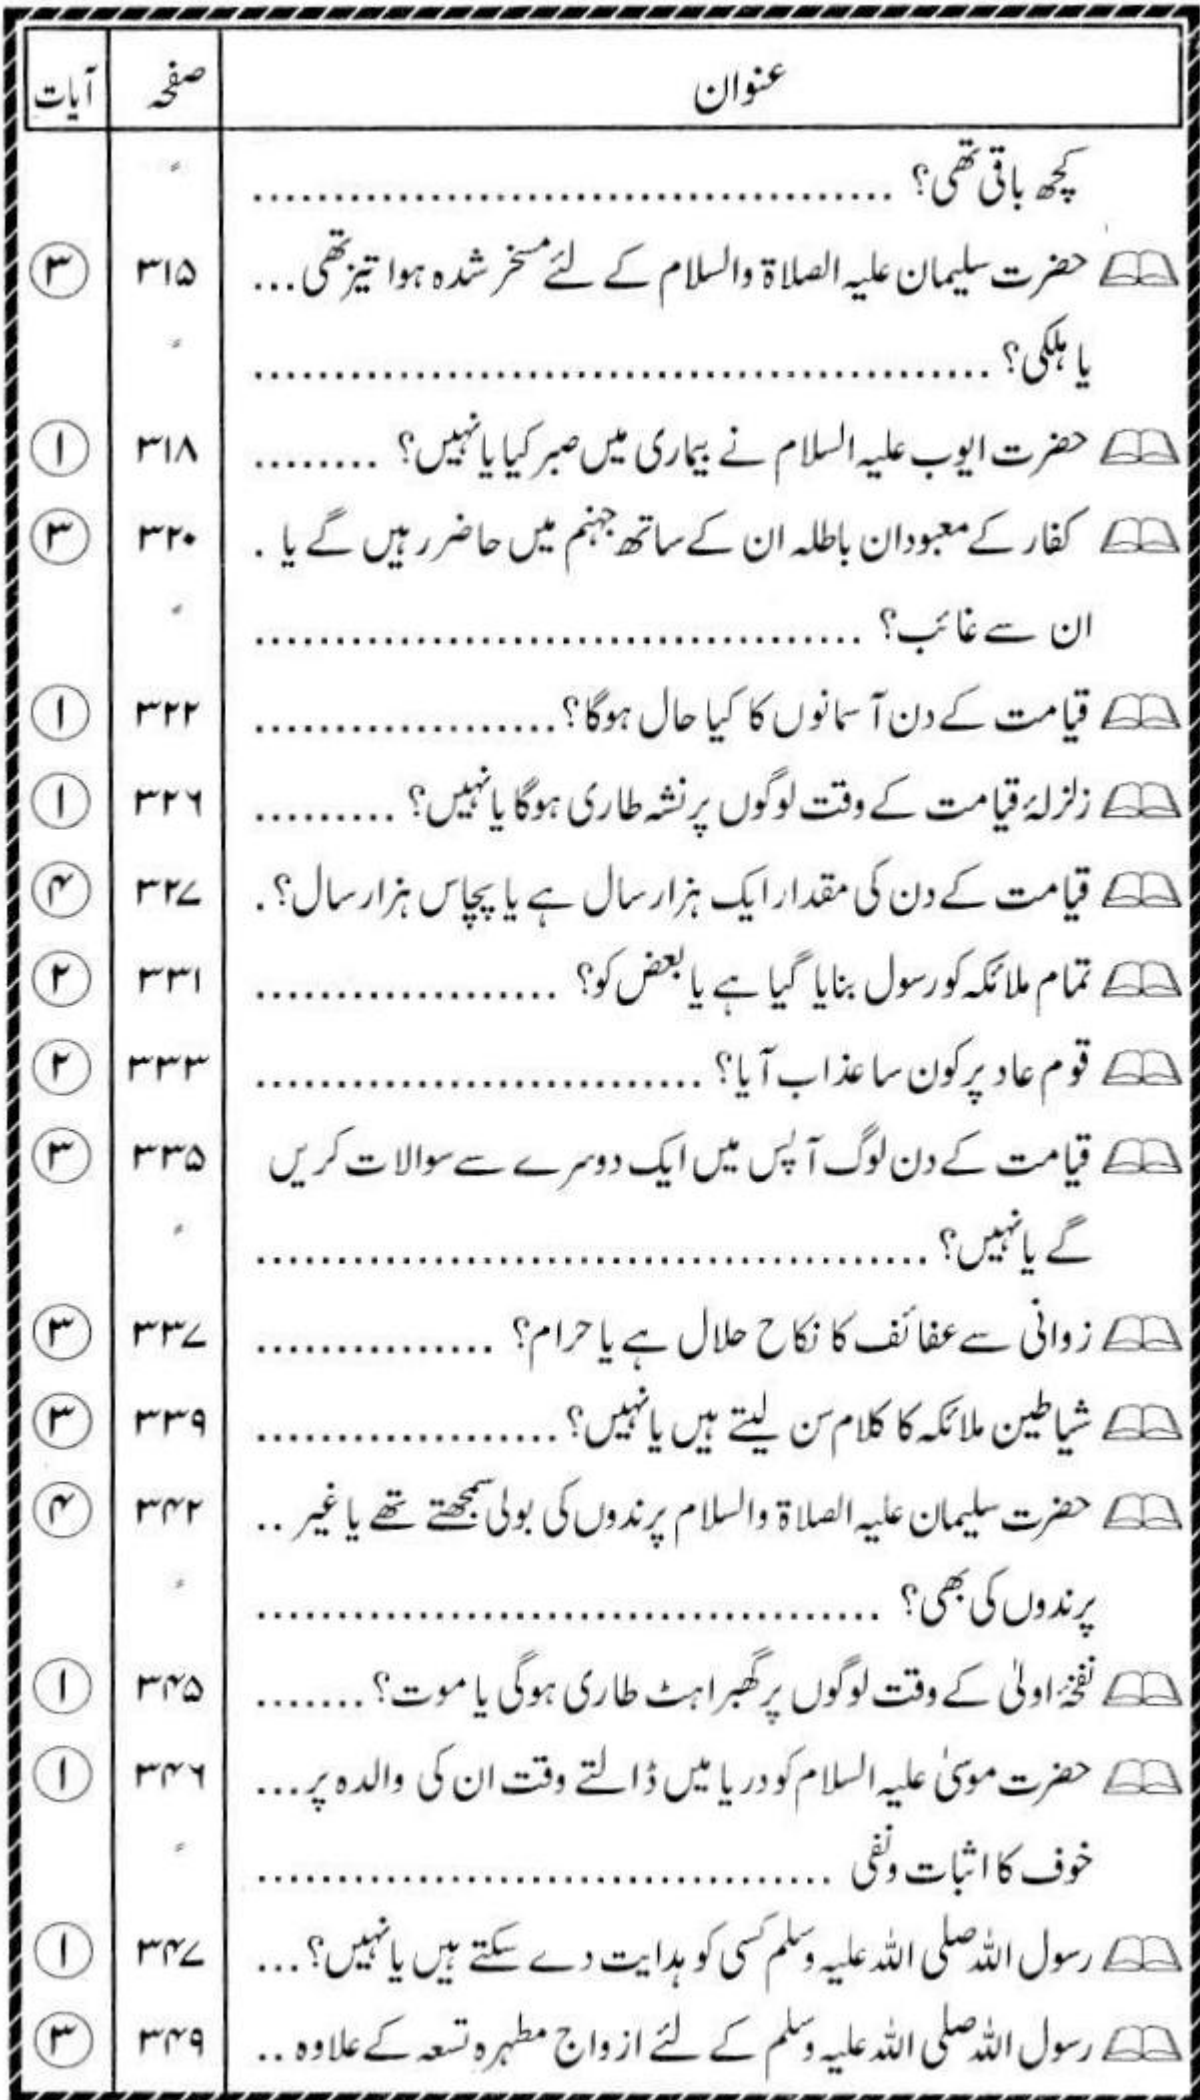 عنوان صفحہ آیات
کچھ باقی تھی؟ ........................................ 〃
حضرت سلیمان علیہ الصلاۃ والسلام کے لئے مسخر شدہ ہوا تیز تھی ... ۳۱۵ ۳
یا ہلکی؟ .............................................. 〃
حضرت ایوب علیہ السلام نے بیماری میں صبر کیا یا نہیں؟ ........ ۳۱۸ ۱
کفار کے معبودان باطلہ ان کے ساتھ جہنم میں حاضر رہیں گے یا . ۳۲۰ ۳
ان سے غائب؟ ...................................... 〃
قیامت کے دن آسمانوں کا کیا حال ہوگا؟ ................... ۳۲۲ ۱
زلزلۂ قیامت کے وقت لوگوں پر نشہ طاری ہوگا یا نہیں؟ ......... ۳۲۶ ۱
قیامت کے دن کی مقدار ایک ہزار سال ہے یا پچاس ہزار سال؟ . ۳۲۷ ۴
تمام ملائکہ کو رسول بنایا گیا ہے یا بعض کو؟ ................... ۳۳۱ ۲
قوم عاد پر کون سا عذاب آیا؟ ............................ ۳۳۳ ۲
قیامت کے دن لوگ آپس میں ایک دوسرے سے سوالات کریں ۳۳۵ ۳
گے یا نہیں؟ .......................................... 〃
زوانی سے عفائف کا نکاح حلال ہے یا حرام؟ ............... ۳۳۷ ۳
شیاطین ملائکہ کا کلام سن لیتے ہیں یا نہیں؟ ................... ۳۳۹ ۳
حضرت سلیمان علیہ الصلاۃ والسلام پرندوں کی بولی سمجھتے تھے یا غیر .. ۳۴۲ ۴
پرندوں کی بھی؟ ....................................... 〃
نفخۂ اولیٰ کے وقت لوگوں پر گھبراہٹ طاری ہوگی یا موت؟ ....... ۳۴۵ ۱
حضرت موسیٰ علیہ السلام کو دریا میں ڈالتے وقت ان کی والدہ پر ... ۳۴۶ ۱
خوف کا اثبات ونفی .................................... 〃
رسول اللہ صلی اللہ علیہ وسلم کسی کو ہدایت دے سکتے ہیں یا نہیں؟ ... ۳۴۷ ۱
رسول اللہ صلی اللہ علیہ وسلم کے لئے ازواج مطہرہ تسعہ کے علاوہ .. ۳۴۹ ۳